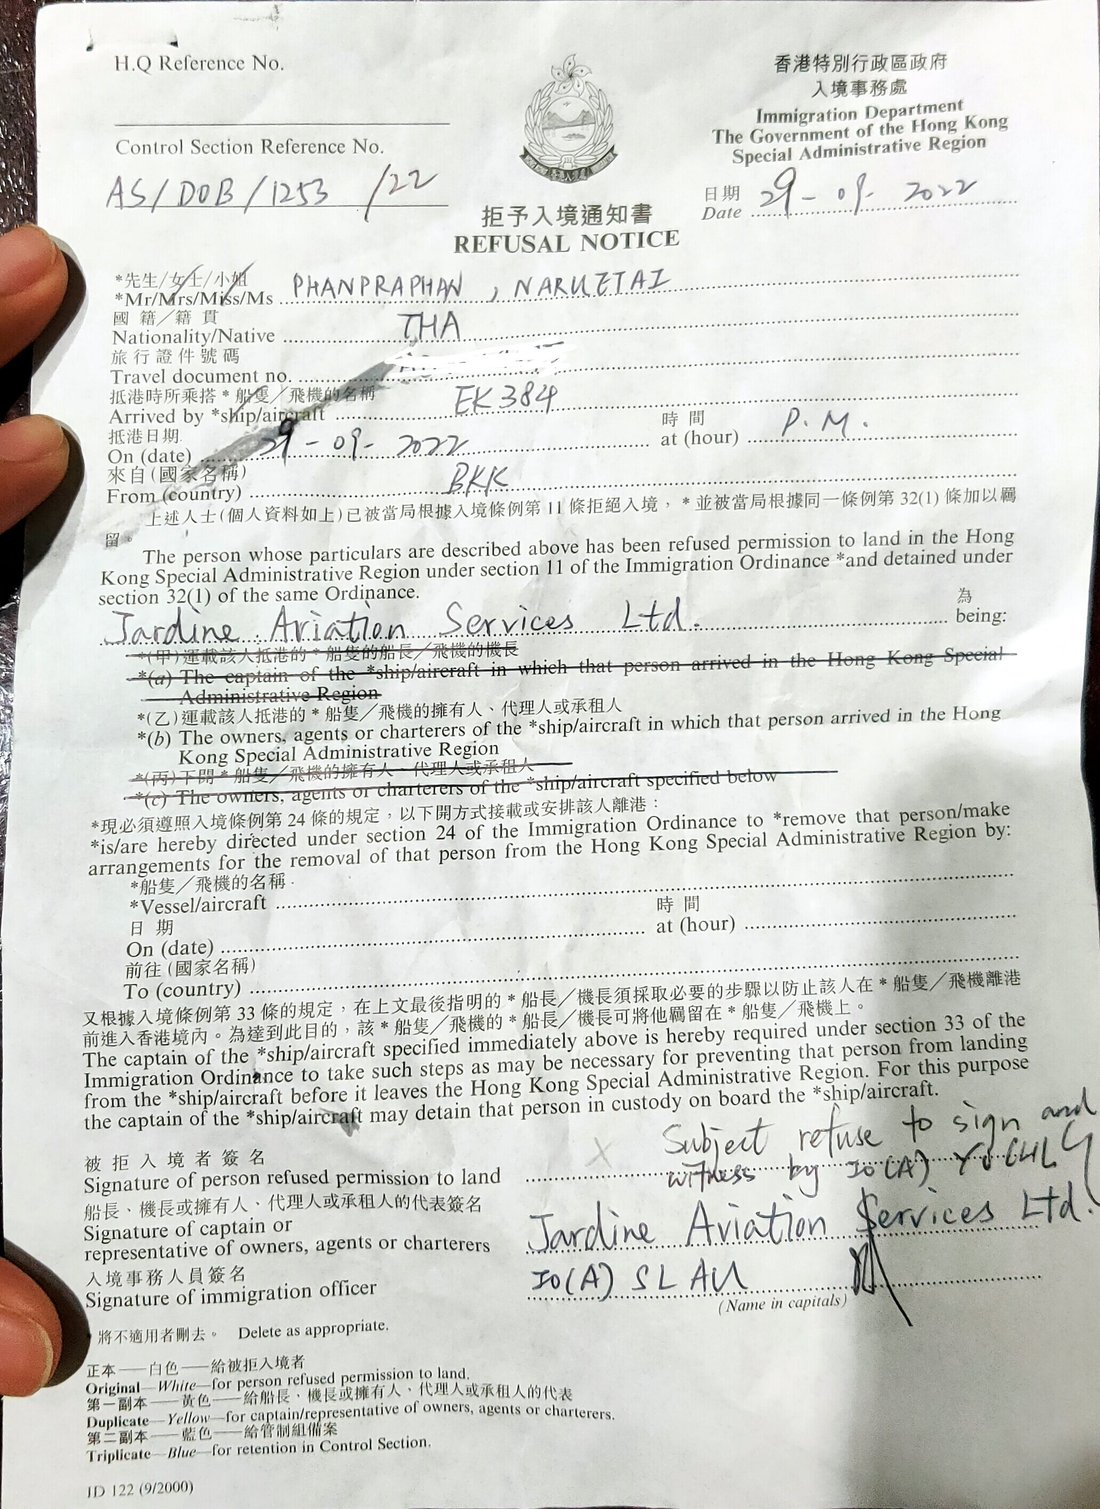 H.Q Reference No.
香港特別行政區政府
入境事務處
Immigration Department
The Government of the Hong Kong
Special Administrative Region
Control Section Reference No.
AS/DOB/1253 /22
日期
Date 29-09-2022
拒予入境通知書
REFUSAL NOTICE
*先生/女士/小姐
*Mr/Mrs/Miss/Ms PHANPRAPHAN, NARUETAI
國籍／籍貫
Nationality/Native THA
旅行證件號碼
Travel document no.
抵港時所乘搭*船隻／飛機的名稱
Arrived by *ship/aircraft EK384
抵港日期
時間
On (date) 29-09-2022 at (hour) P.M.
來自(國家名稱)
From (country) BKK
上述人士(個人資料如上)已被當局根據入境條例第11條拒絕入境，*並被當局根據同一條例第32(1)條加以羈
留。
The person whose particulars are described above has been refused permission to land in the Hong
Kong Special Administrative Region under section 11 of the Immigration Ordinance *and detained under
section 32(1) of the same Ordinance.
為
Jardine Aviation Services Ltd. being:
*(甲)運載該人抵港的*船隻的船長／飛機的機長
*(a) The captain of the *ship/aircraft in which that person arrived in the Hong Kong Special
Administrative Region
*(乙)運載該人抵港的*船隻／飛機的擁有人、代理人或承租人
*(b) The owners, agents or charterers of the *ship/aircraft in which that person arrived in the Hong
Kong Special Administrative Region
*(丙)下開*船隻／飛機的擁有人、代理人或承租人
*(c) The owners, agents or charterers of the *ship/aircraft specified below
*現必須遵照入境條例第24條的規定，以下開方式接載或安排該人離港：
*is/are hereby directed under section 24 of the Immigration Ordinance to *remove that person/make
arrangements for the removal of that person from the Hong Kong Special Administrative Region by:
*船隻／飛機的名稱
*Vessel/aircraft
日期
時間
On (date) at (hour)
前往(國家名稱)
To (country)
又根據入境條例第33條的規定，在上文最後指明的*船長／機長須採取必要的步驟以防止該人在*船隻／飛機離港
前進入香港境內。為達到此目的，該*船隻／飛機的*船長／機長可將他羈留在*船隻／飛機上。
The captain of the *ship/aircraft specified immediately above is hereby required under section 33 of the
Immigration Ordinance to take such steps as may be necessary for preventing that person from landing
from the *ship/aircraft before it leaves the Hong Kong Special Administrative Region. For this purpose
the captain of the *ship/aircraft may detain that person in custody on board the *ship/aircraft.
Subject refuse to sign and
被拒入境者簽名
Signature of person refused permission to land
witness by IO(A)
船長、機長或擁有人、代理人或承租人的代表簽名
Signature of captain or
representative of owners, agents or charterers
Jardine Aviation Services Ltd.
入境事務人員簽名
Signature of immigration officer
IO(A) SLAU
(Name in capitals)
*將不適用者刪去。 Delete as appropriate.
正本——白色——給被拒入境者
Original—White—for person refused permission to land.
第一副本——黃色——給船長、機長或擁有人、代理人或承租人的代表
Duplicate—Yellow—for captain/representative of owners, agents or charterers.
第二副本——藍色——給管制組備案
Triplicate—Blue—for retention in Control Section.
ID 122 (9/2000)